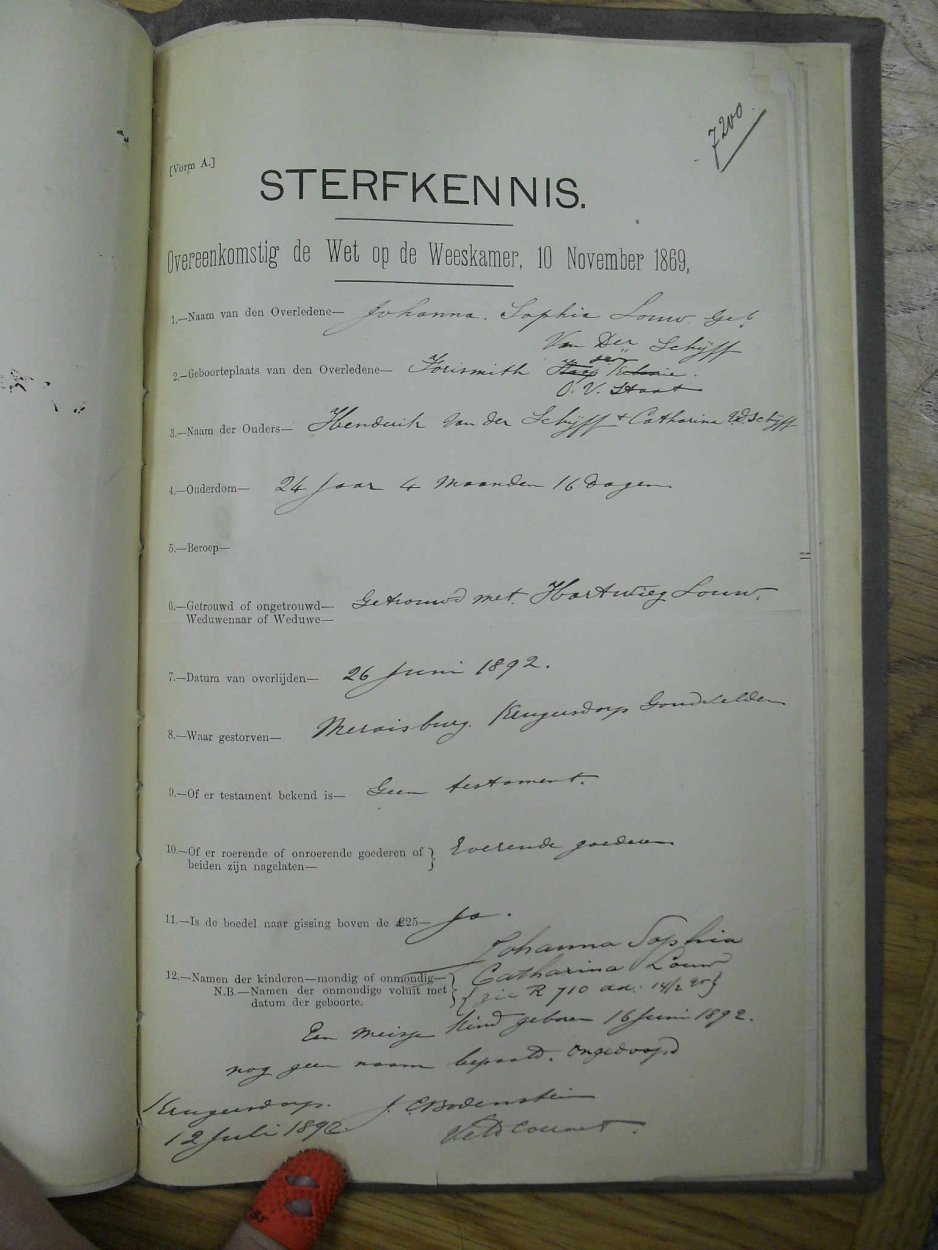 7200
[Vorm A.]
STERFKENNIS.
Overeenkomstig de Wet op de Weeskamer, 10 November 1869,
1.—Naam van den Overledene— Johanna. Sophia Louw. Geb
Van Der Schijff
2.—Geboorteplaats van den Overledene— Forismith
O. V. Staat
3.—Naam der Ouders— Henderik Van der Schijff + Catharina V.D. Schijff
4.—Ouderdom— 24 Jaar 4 Maanden 16 Dagen
5.—Beroep—
6.—Getrouwd of ongetrouwd— Getrouwd met. Hartwieg Louw.
Weduwenaar of Weduwe—
7.—Datum van overlijden— 26 Juni 1892.
8.—Waar gestorven— Meraisburg. Krugersdorp Goudvelden
9.—Of er testament bekend is— Geen testament.
10.—Of er roerende of onroerende goederen of } Roerende goederen
beiden zijn nagelaten—
11.—Is de boedel naar gissing boven de £25— Ja.
Johanna Sophia
12.—Namen der kinderen—mondig of onmondig— } Catharina Louw
N.B.—Namen der onmondige voluit met } {zie R 710 dd. 14/2 90}
datum der geboorte.
Een meisje kind geboren 16 Juni 1892.
nog geen naam bepaald. ongedoopd
Krugersdorp. J. C Bodenstein
12 Juli 1892 Veld Cornet.